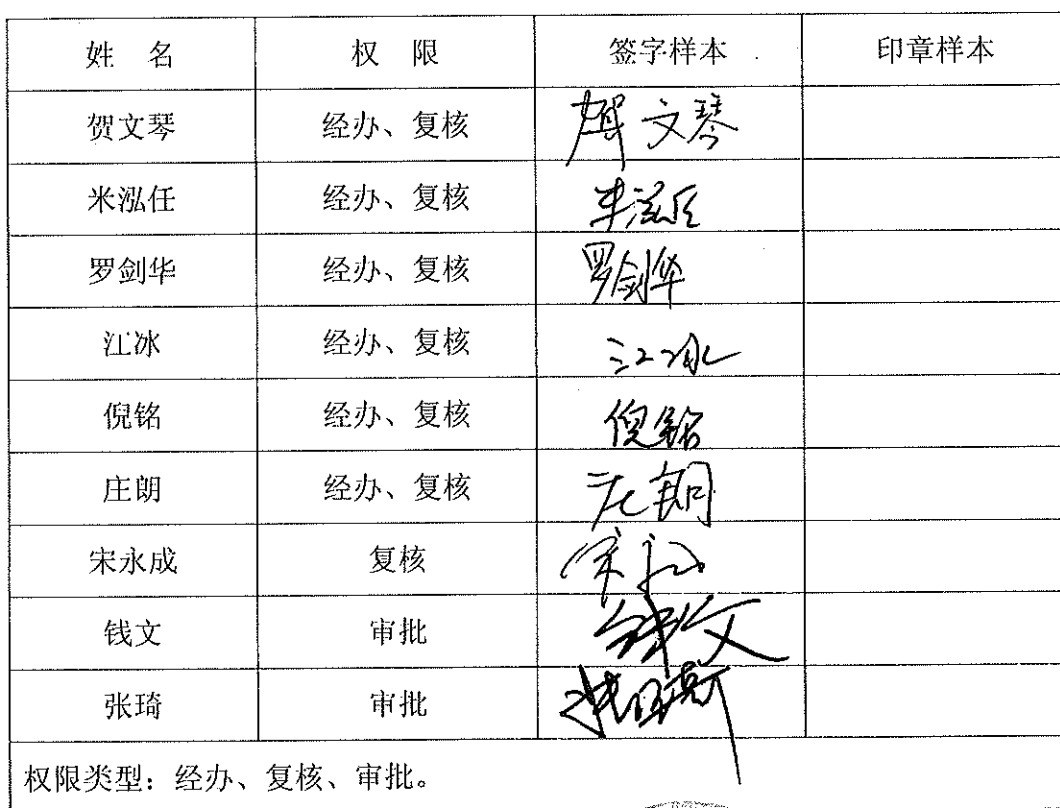 姓 名 权 限 签字样本 印章样本
贺文琴 经办、复核 贺文琴
米泓任 经办、复核 米泓任
罗剑华 经办、复核 罗剑华
江冰 经办、复核 江冰
倪铭 经办、复核 倪铭
庄朗 经办、复核 庄朗
宋永成 复核
钱文 审批 钱文
张琦 审批
权限类型：经办、复核、审批。